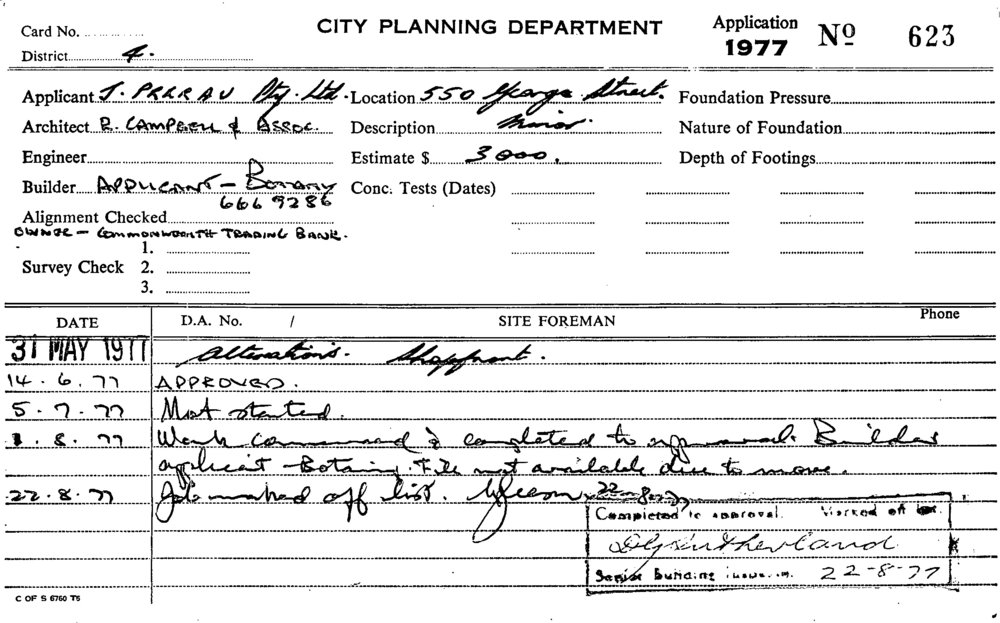 Card No.
CITY PLANNING DEPARTMENT
Application
1977 Nº 623
District 4.
Applicant J. PRERAU Pty. Ltd. Location 550 George Street. Foundation Pressure
Architect R. CAMPBELL & ASSOC. Description Minor. Nature of Foundation
Engineer Estimate $ 3000. Depth of Footings
Builder APPLICANT - BOTANY Conc. Tests (Dates)
666 9286
Alignment Checked
OWNER - COMMONWEALTH TRADING BANK.
1.
Survey Check 2.
3.
DATE D.A. No. / SITE FOREMAN Phone
31 MAY 1977 Alterations. Shopfront.
14. 6. 77 APPROVED.
5. 7. 77 Not started.
1. 8. 77 Work commenced & completed to approval. Builder
applicant - Botany. File not available due to move.
22. 8. 77 Job marked off list. 22-8-77
Completed to approval. Marked off list.
Sutherland
Senior Building 22-8-77
C OF S 6760 T5